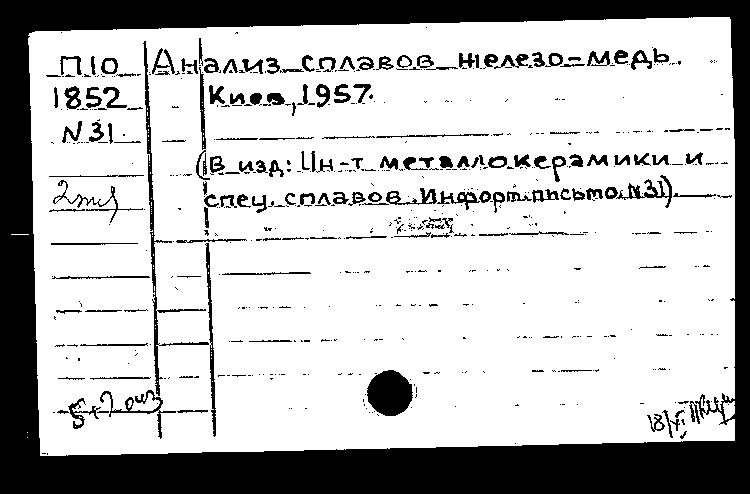 П10 Анализ сплавов железо-медь.
1852 Киев, 1957.
N31.
(В изд: Ин-т металлокерамики и
спец. сплавов. Информ. письмо. N31).
2 экз
18/XI